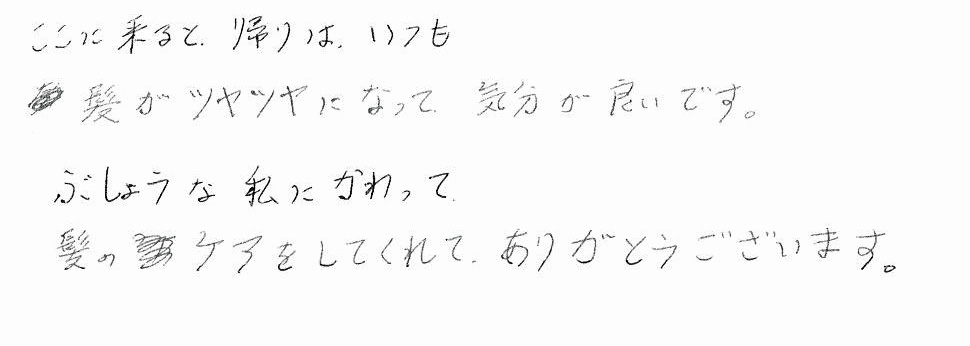 ここに来ると、帰りは、いつも
髪がツヤツヤになって、気分が良いです。
ぶしょうな私にかわって、
髪のケアをしてくれて、ありがとうございます。